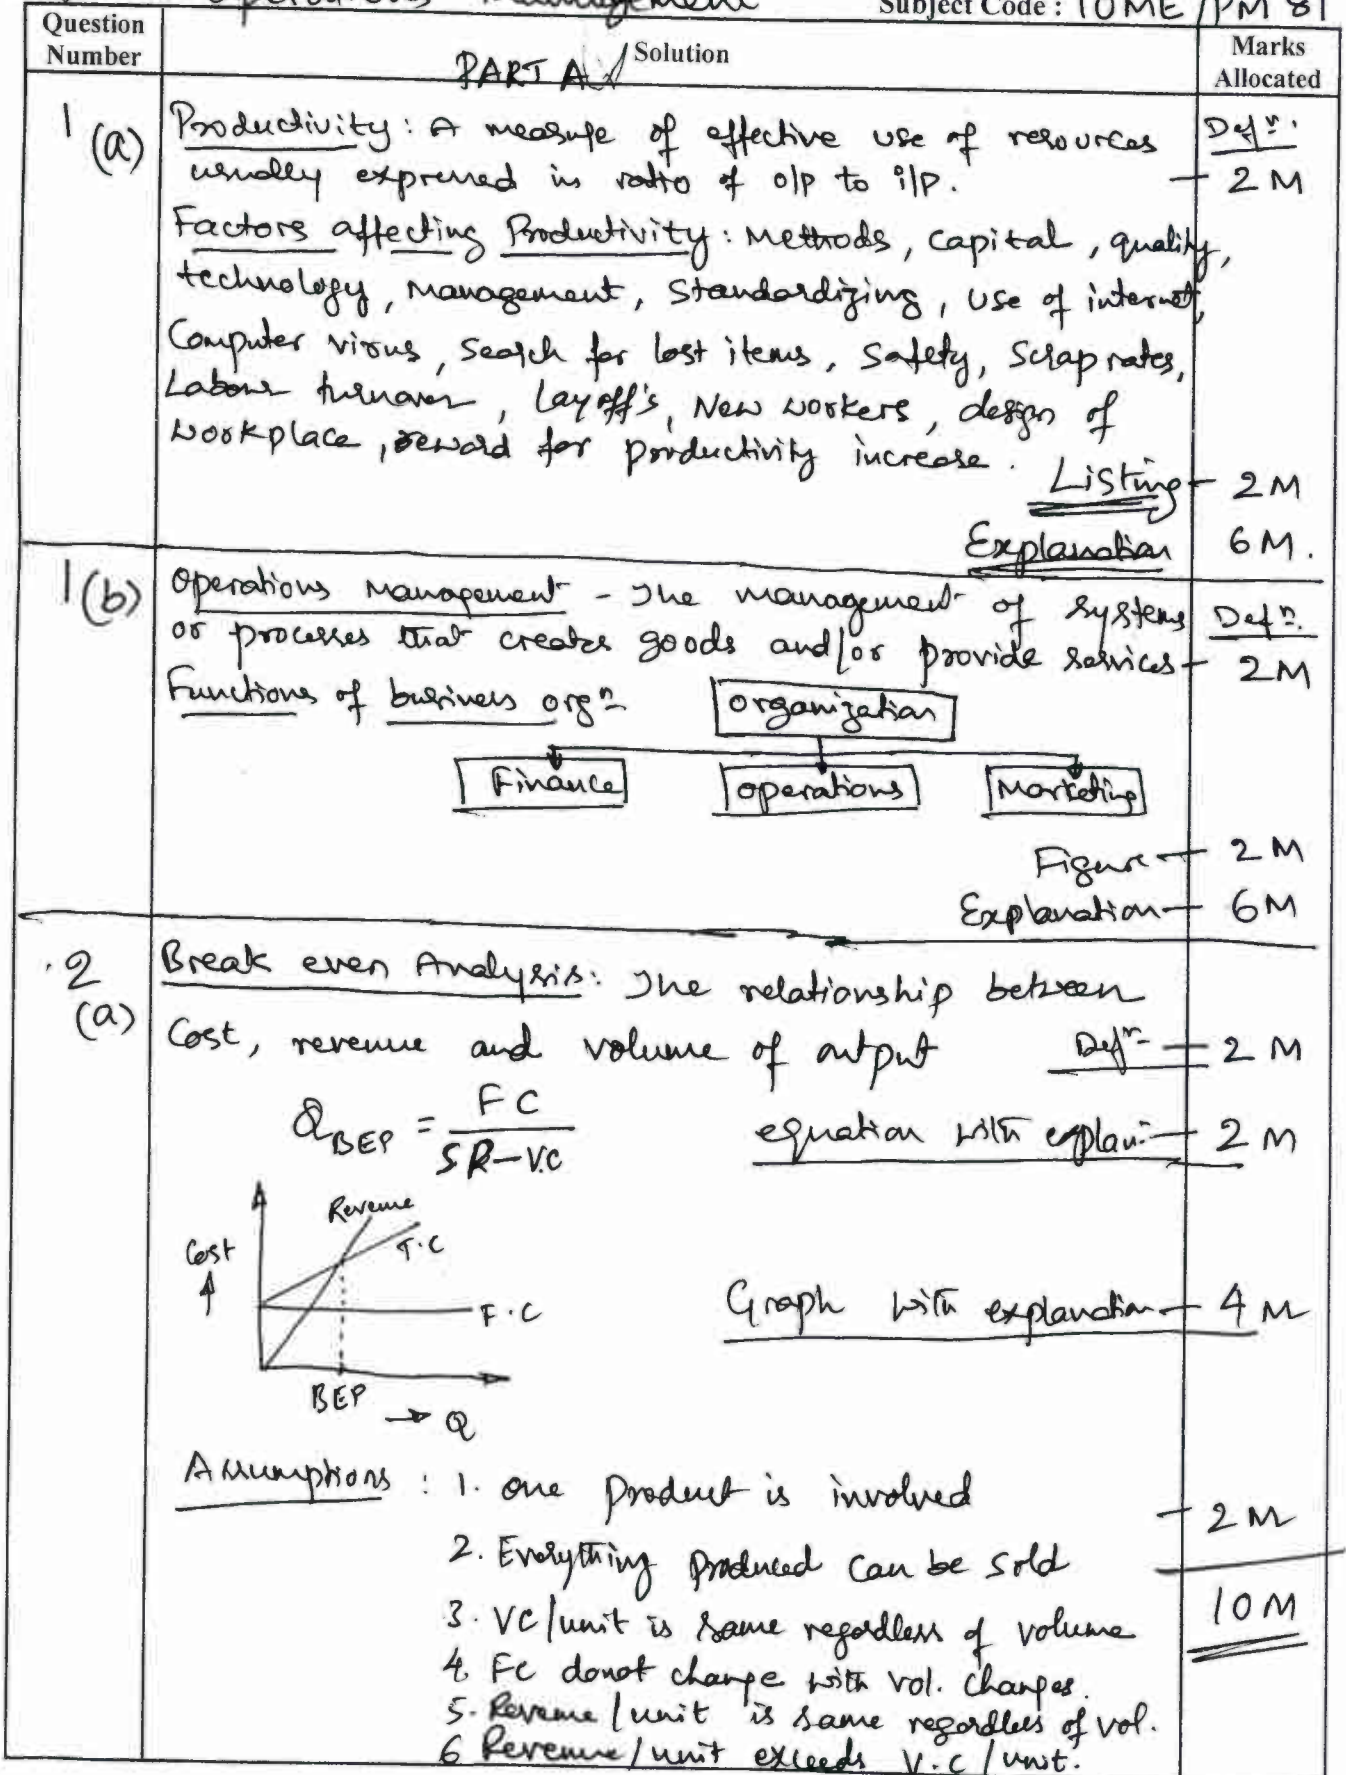 Operations Management Subject Code : 10ME/PM 81
Question Number Solution Marks Allocated
PART A
1 (a) Productivity : A measure of effective use of resources Defn.
usually expressed in ratio of o/p to i/p. — 2 M
Factors affecting Productivity : Methods, capital, quality,
technology, Management, Standardizing, use of internet,
Computer virus, Search for lost items, Safety, Scrap rates,
Labour turnover, layoff's, New workers, design of
workplace, reward for productivity increase.
Listing — 2 M
Explanation 6 M.
1(b) Operations Management - The management of systems Defn.
or processes that creates goods and/or provide services — 2M
Functions of business orgn
Organization
Finance operations Marketing
Figure — 2 M
Explanation — 6 M
2 (a) Break even Analysis: The relationship between
Cost, revenue and volume of output Defn — 2 M
Q BEP = FC / SR-V.C equation with explan. — 2 M
Revenue
Cost T.C
F.C Graph with explanation — 4 M
BEP
→ Q
Assumptions : 1. one Product is involved — 2 M
2. Everything produced can be sold
3. VC/unit is same regardless of volume 10 M
4. FC donot change with vol. changes.
5. Revenue/unit is same regardless of vol.
6 Revenue/unit exceeds V.C/unit.